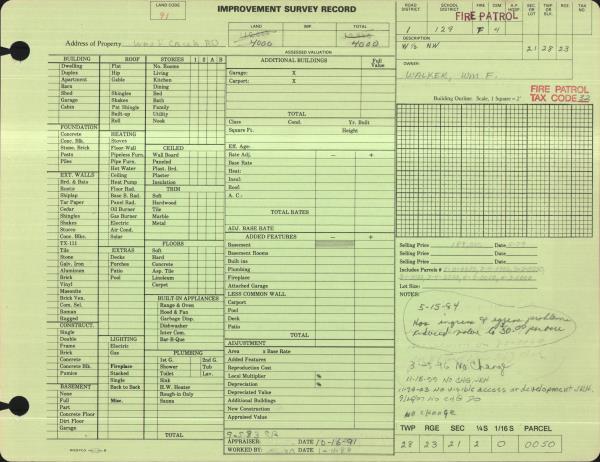 LAND CODE
91
IMPROVEMENT SURVEY RECORD
Address of Property
LAND
IMP.
TOTAL
4000
4000
ASSESSED VALUATION
ROAD DISTRICT
SCHOOL DISTRICT
FIRE
CEM
FIRE PATROL
1 129 F 4
SEC OR LOT
TWP OR BLK
RGE
TAX NO
W½ NW
21 28 23
OWNER:
WALKER, WM F.
FIRE PATROL
TAX CODE 32
Building Outline: Scale, 1 Square = 2'
BUILDING
Dwelling
Duplex
Apartment
Barn
Shed
Garage
Cabin
ROOF
Flat
Hip
Gable
Shingles
Shakes
Pat Shingle
Built-up
Roll
STORIES 1 2 A B
No. Rooms
Living
Kitchen
Dining
Bed
Bath
Family
Utility
Nook
FOUNDATION
Concrete
Conc. Blk.
Stone, Brick
Posts
Piles
HEATING
Stoves
Floor-Wall
Pipeless Furn.
Pipe Furn.
Hot Water
Ceiling
Heat Pump
Floor Rad.
Base B. Rad.
Panel Rad.
Oil Burner
Gas Burner
Electric
Air Cond.
Solar
CEILED
Wall Board
Paneled
Plast. Brd.
Plaster
Insulation
TRIM
Soft
Hardwood
Tile
Marble
Metal
EXT. WALLS
Brd. & Bats
Rustic
Shiplap
Tar Paper
Cedar
Shingles
Shakes
Stucco
Conc. Blks.
TX-111
Tile
Stone
Galv. Iron
Aluminum
Brick
Vinyl
Masonite
Brick Ven.
Com. Sel.
Roman
Rugged
EXTRAS
Decks
Porches
Patio
Pool
FLOORS
Soft
Hard
Concrete
Asp. Tile
Linoleum
Carpet
BUILT-IN APPLIANCES
Range & Oven
Hood & Fan
Garbage Disp.
Dishwasher
Inter Com.
Bar-B-Que
CONSTRUCT.
Single
Double
Frame
Brick
Concrete
Conc. Blk.
Pumice
LIGHTING
Electric
Gas
Fireplace
Stacked
Single
Back to Back
Misc.
PLUMBING
1st G. 2nd G.
Shower Tub
Toilet Lav.
Sink
H.W. Heater
Rough-in Only
Sauna
BASEMENT
None
Full
Part
Concrete Floor
Dirt Floor
Garage
TOTAL
ADDITIONAL BUILDINGS
Full Value
Garage: X
Carport: X
TOTAL
Class Cond. Yr. Built
Square Ft. Height
Eff. Age:
Rate Adj. — +
Base Rate
Heat:
Insul:
Roof
A. C.:
TOTAL RATES
ADJ. BASE RATE
ADDED FEATURES — +
Basement
Basement Rooms
Built ins
Plumbing
Fireplace
Attached Garage
LESS COMMON WALL
Carport
Pool
Deck
Patio
TOTAL
ADJUSTMENT
Area x Base Rate
Added Features
Reproduction Cost
Local Multiplier %
Depreciation %
Depreciated Value
Additional Buildings
New Construction
Appraised Value
APPRAISER: DATE 10-16-91
WORKED BY: DATE
Selling Price
Selling Price
Selling Price
Includes Parcels #
Lot Size:
NOTES:
5-15-84
Has ingress & egress problems
reduced notes to 50.00 per acre
No Change
11-18-99 NO CHG.
No visible access or development
NO CHG
No change
TWP RGE SEC ¼S 1/16 S PARCEL
28 23 21 2 0 0050